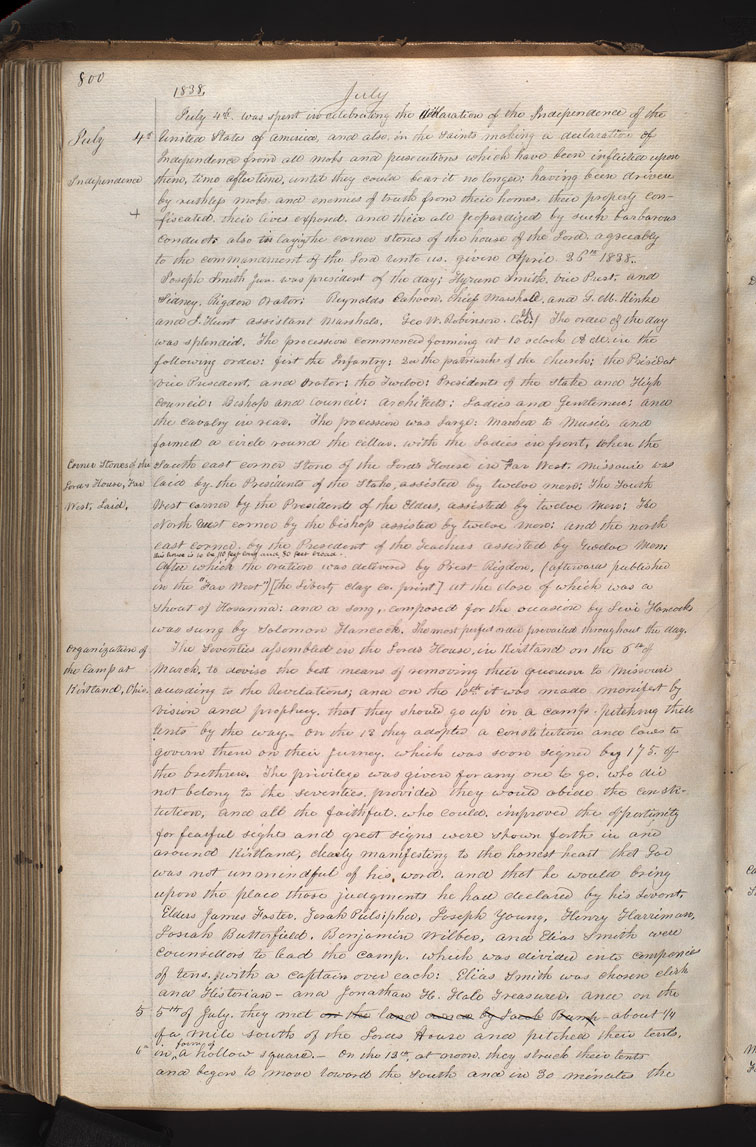 800
1838.
July
July 4th
Independence
+
July 4th. was spent in celebrating the declaration of the Independence of the
United States of america, and also, in the Saints making a declaration of
Independence from all mobs and persecutions which have been inflicted upon
them, time after time, until they could bear it no longer: having been driven
by ruthless mobs, and enemies of truth from their homes, their property con-
fiscated, their lives exposed, and their all jeopardized by such barbarous
conduct: also in laying the corner stones of the house of the Lord, agreeably
to the commandment of the Lord unto us, given April 26th 1838.
Joseph Smith Jun. was president of the day; Hyrum Smith, vice Prest. and
Sidney Rigdon Orator; Reynolds Cahoon, Chief Marshal, and G. M. Hinkle
and J. Hunt assistant Marshals. Geo W. Robinson. The order of the day
was splendid. The procession commenced forming at 10 oclock A M. in the
following order: first the Infantry; 2d the patriarchs of the church; the President
vice President, and Orator; the Twelve; Presidents of the Stake and High
Council; Bishop and Council; Architects; Ladies and Gentlemen; and
the cavalry in rear. The procession was large: marched to Music, and
formed a circle round the cellar, with the Ladies in front, when the
Corner Stones of the
Lords House, Far
West, Laid.
South east corner Stone of the Lords House in Far West, Missouri was
laid by the Presidents of the Stake, assisted by twelve men; The South
West corner by the Presidents of the Elders, assisted by twelve Men; The
North West corner by the bishop assisted by twelve men; and the north
east corner, by the President of the Teachers assisted by Twelve Men.
this house is to be 110 feet long and 80 feet broad.
After which the oration was delivered by Prest Rigdon, (afterwards published
in the "Far West") [the Liberty clay co. print] at the close of which was a
shout of Hosanna: and a song, composed for the occasion by Levi Hancock
was sung by Solomon Hancock. The most perfect order prevailed throughout the day.
Organization of
the Camp at
Kirtland, Ohio.
The Seventies assembled in the Lords House, in Kirtland on the 6th of
March, to devise the best means of removing their quorum to Missouri
according to the Revelations; and on the 10th it was made manifest by
vision and prophecy, that they should go up in a camp, pitching their
tents by the way, - on the 13 they adopted a constitution and laws to
govern them on their journey, which was soon signed by 175 of
the brethren. The privilege was given for any one to go, who did
not belong to the seventies, provided they would abide the consti-
tution, and all the faithful who could, improved the opportunity
for fearful sights and great signs were shown forth in and
around Kirtland, clearly manifesting to the honest heart that God
was not unmindful of his word, and that he would bring
upon the place those judgments he had declared by his Servant.
Elders James Foster, Zerah Pulsipher, Joseph Young, Henry Harriman,
Josiah Butterfield, Benjamin Wilber, and Elias Smith were
councellors to lead the camp, which was divided into companies
of tens, with a captain over each: Elias Smith was chosen clerk
and Historian - and Jonathan H. Hale Treasurer, and on the
5 5th of July, they met on the land owned by Jacob Bump about 1/4
of a mile south of the Lords House and pitched their tents,
6 in form of a hollow square. - On the 13th, at noon, they struck their tents
and began to move toward the South and in 30 minutes the